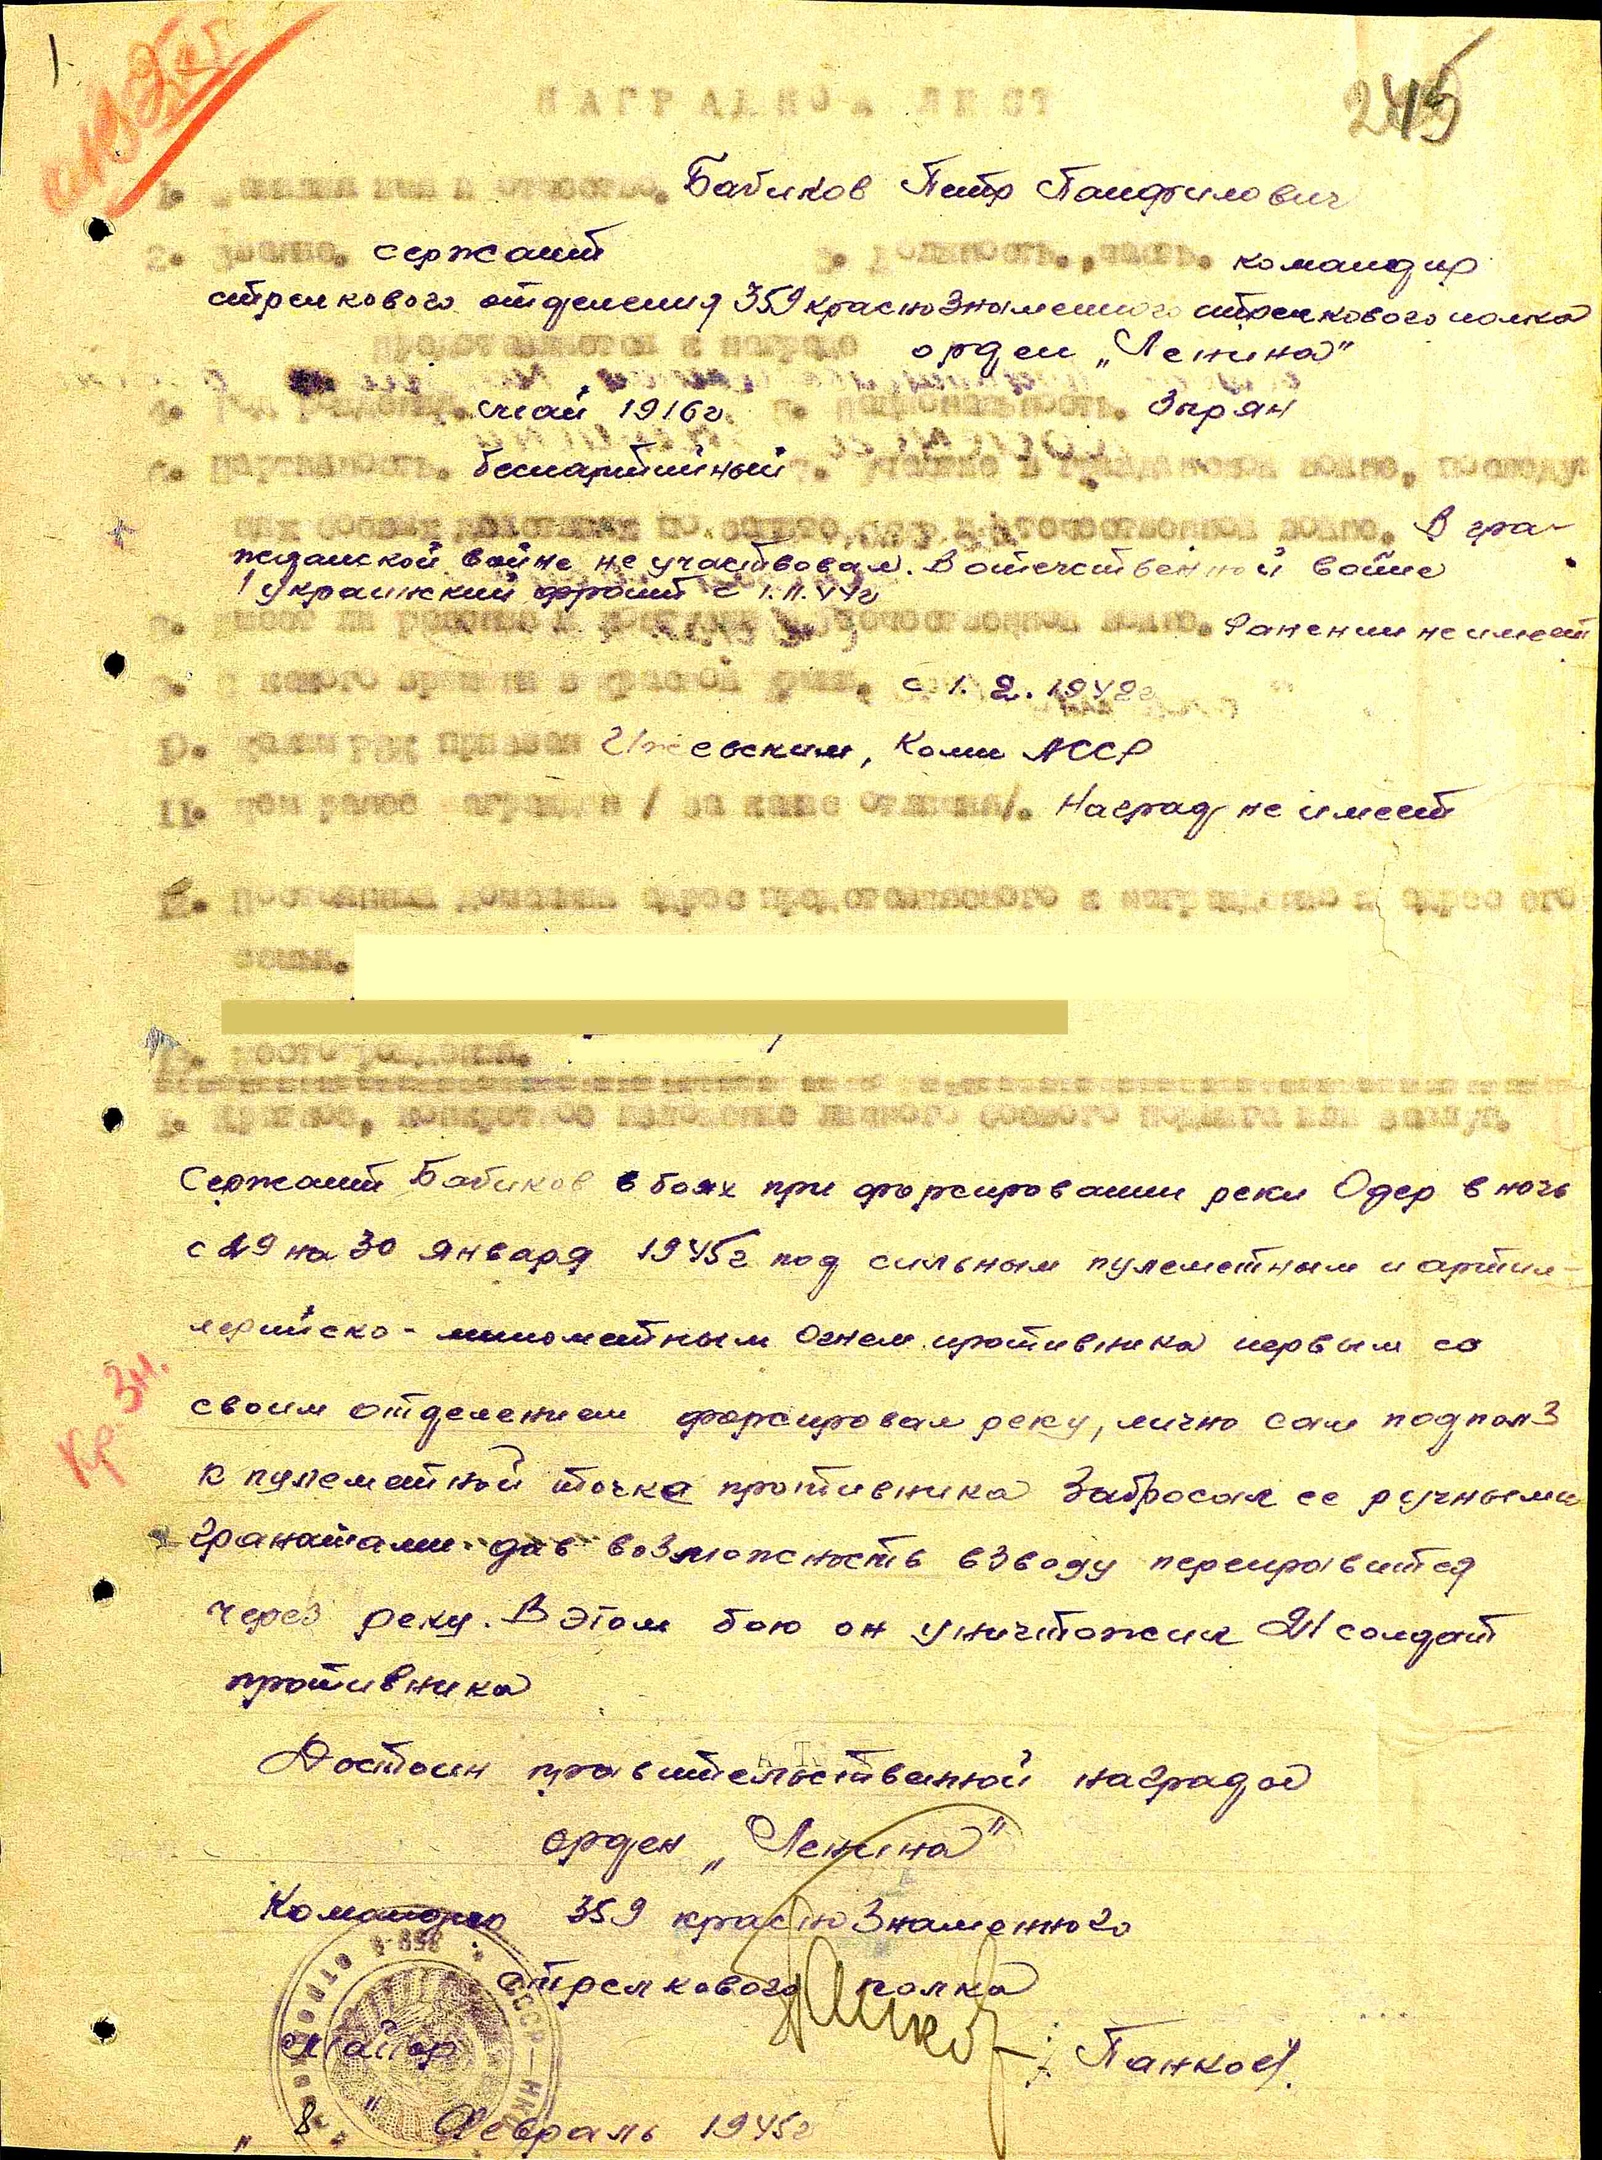 1
245
НАГРАДНОЙ ЛИСТ
1. Фамилия имя и отчество. Бабиков Петр Панфилович
2. Звание. сержант 3. Должность, часть. командир
стрелкового отделения 359 краснознаменного стрелкового полка
Представляется к награде орден „Ленина"
4. Год рождения. май 1916г 5. Национальность. Зырян
6. Партийность. беспартийный 7. Участие в гражданской войне, последую
щих боевых действиях по защите СССР и отечественной войне. В гра-
жданской войне не участвовал. В отечественной войне
1 украинский фронт с 1.11.44г
8. Имеет ли ранения и контузии в отечественной войне. Ранении не имеет
9. С какого времени в Красной Армии, с 1. 2. 1942г
10. Каким РВК призван Ижевским, Коми АССР
11. Чем ранее награжден / за какие отличия/. Наград не имеет
12. Постоянный домашний адрес представляемого к награждению и адрес его
семьи.
13. Место рождения.
1. Краткое, конкретное изложение личного боевого подвига или заслуг.
Сержант Бабиков в боях при форсировании реки Одер в ночь
с 29 на 30 января 1945г под сильным пулеметным и артил-
лерийско-минометным огнем противника первым со
своим отделением форсировал реку, лично сам подполз
к пулеметной точке противника забросал ее ручными
гранатами дав возможность взводу переправится
через реку. В этом бою он уничтожил 21 солдат
противника
Кр Зн.
Достоин правительственной награды
орден „Ленина"
Командир 359 краснознаменного
стрелкового полка
майор / Панков /.
„ 8 " Февраль 1945г